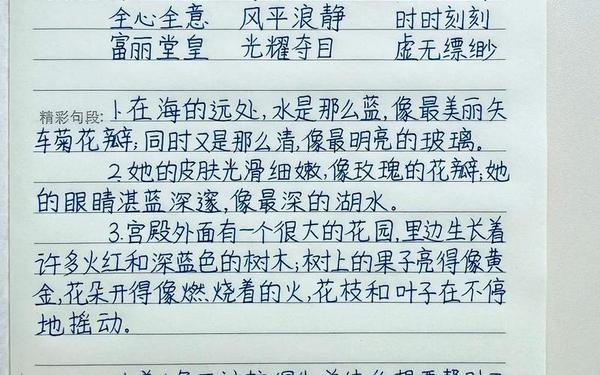 全心全意 风平浪静 时时刻刻
富丽堂皇 光耀夺目 虚无缥缈
精彩句段: 1.在海的远处,水是那么蓝,像最美丽矢
车菊花瓣;同时又是那么清,像最明亮的玻璃。
2.她的皮肤光滑细嫩,像玫瑰的花瓣;她
的眼睛湛蓝深邃,像最深的湖水。
3.宫殿外面有一个很大的花园,里边生长着
许多火红和深蓝色的树木;树上的果子亮得像黄
金,花朵开得像燃烧着的火,花枝和叶子在不停
地摇动。